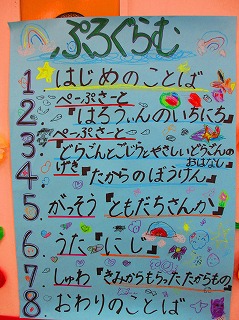 ぷろぐらむ
1 はじめのことば
2. ぺーぷさーと
『はろうぃんのいちにち』
3. ぺーぷさーと
『どらごんとごじらとやさしいどらごんの
おはなし』
4 げき『たからのぼうけん』
5 がっそう『ともだちさんか』
6. うた『にじ』
7. しゅわ『きみからもらったたからもの』
8. おわりのことば